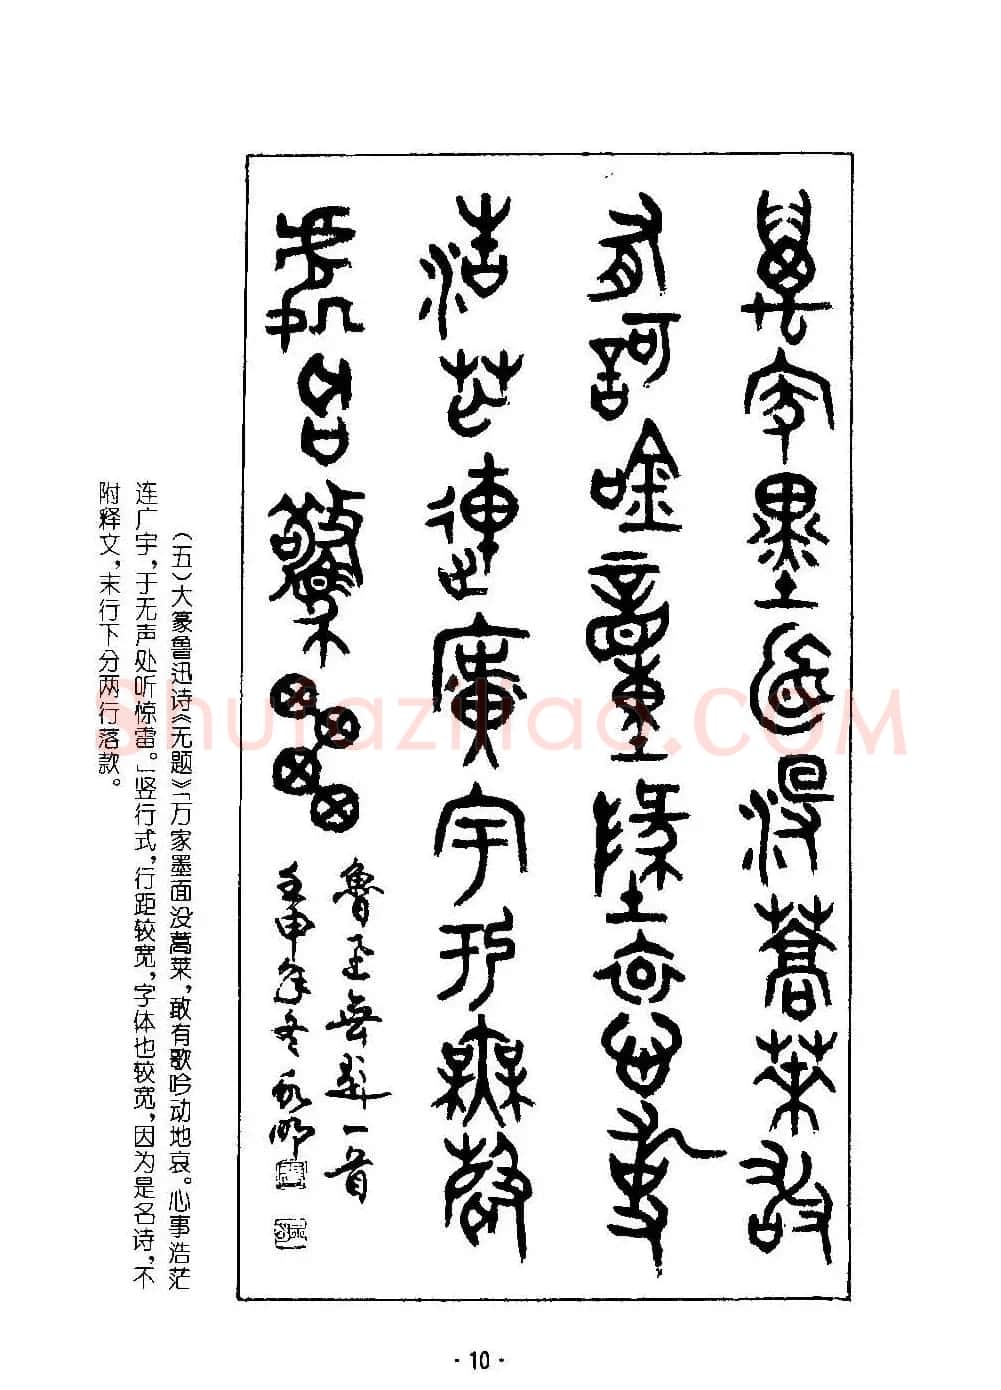 萬家墨面没蒿萊敢
有歌吟動地哀心事
浩茫連廣宇于無聲
處聽驚雷
魯迅無題一首
壬申年冬永明
（五）大篆鲁迅诗《无题》“万家墨面没蒿莱，敢有歌吟动地哀。心事浩茫
连广宇，于无声处听惊雷。”竖行式，行距较宽，字体也较宽，因为是名诗，不
附释文，末行下分两行落款。
Shufaziliao.COM
· 10 ·